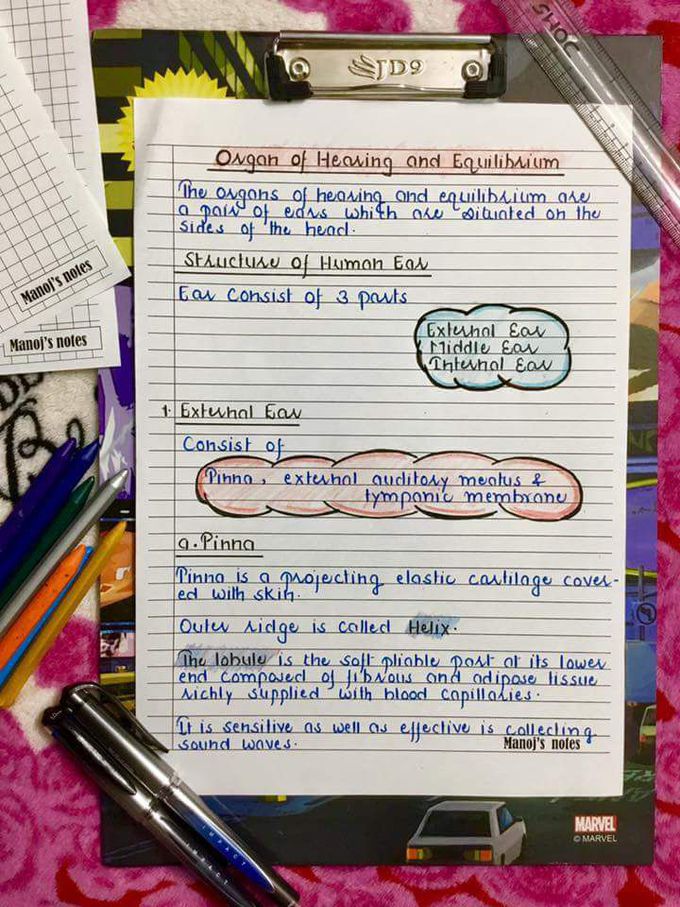 SHOC
JD9
Organ of Hearing and Equilibrium
The organs of hearing and equilibrium are
a pair of ears which are situated on the
sides of the head.
Structure of Human Ear
Ear consist of 3 parts
External Ear
Middle Ear
Internal Ear
1. External Ear
Consist of
Pinna, external auditory meatus &
tympanic membrane
a. Pinna
Pinna is a projecting elastic cartilage cover-
ed with skin.
Outer ridge is called Helix.
The lobule is the soft pliable part at its lower
end composed of fibrous and adipose tissue
richly supplied with blood capillaries.
It is sensitive as well as effective is collecting
sound waves.
Manoj's notes
Manoj's notes
Manoj's notes
IMPACT
IMPACT
MARVEL
© MARVEL